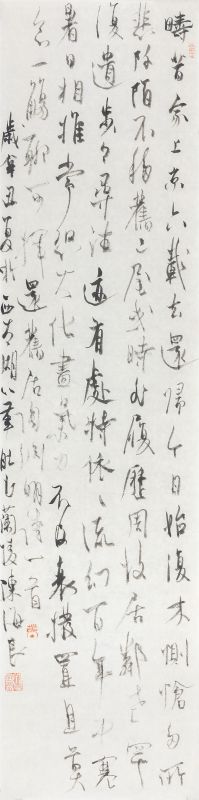 疇昔家上京六載去還歸今日始復来惻愴多所
悲阡陌不移舊邑屋或時非履歷周故居鄰老罕
復遺步々尋往迹有處特依々流幻百年中寒
暑日相推常恐大化盡氣力不及衰撥置且莫
念一觴聊可揮還舊居陶淵明詩一首
歲辛丑夏於西太湖蘭陵陳海良